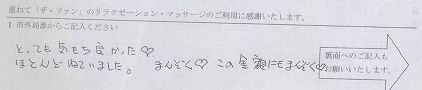 重ねて「ザ・ファン」のリラクゼーション・マッサージのご利用に感謝いたします。
1 市外局番からご記入ください
とっても気もち良かった♡
ほとんどねていました。 まんぞく♡ この金額にもまんぞく♡
裏面へのご記入も
お願いいたします。